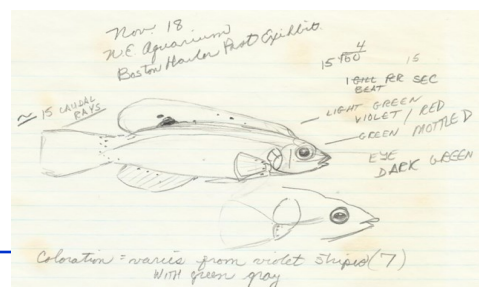 Nov. 18
N.E. Aquarium
Boston Harbor Past Exhibit
4
15 60
15
1 GILL PER SEC
BEAT
≈ 15 CAUDAL
RAYS
LIGHT GREEN
VIOLET / RED
GREEN MOTTLED
EYE
DARK GREEN
Coloration = varies from violet stripes (7)
WITH green gray